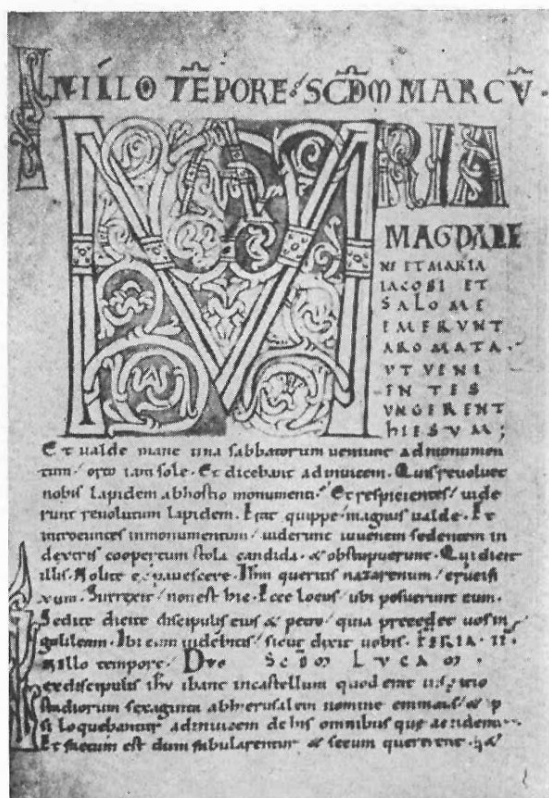 IN ILLO TĒPORE SCDM MARCV̄
MARIA
MAGDALE
NE ET MARIA
IACOBI ET
SALOME
EMERVNT
AROMATA·
VT VENI
ENTES
VNGERENT
HIESVM;
Et valde mane una sabbatorum veniunt ad monumen
tum / orto iam sole · Et dicebant adinuicem · Quis reuoluet
nobis lapidem abhostio monumenti · Et respicientes / uide
runt reuolutum lapidem · Erat quippe magnus valde · Et
introeuntes inmonumentum / uiderunt iuuenem sedentem in
dextris coopertum stola candida · & obstupuerunt · Qui dicit
illis · Nolite expauescere · Ihm queritis nazarenum / crucifi
xum · Surrexit / non est hic · Ecce locus / ubi posuerunt eum ·
Sed ite dicite discipulis eius & petro / quia precedet uos in
galileam · Ibi eum uidebitis / sicut dixit uobis · FERIA · II
In illo tempore · Duo SCDM LVCAM ·
ex discipulis ihu ibant incastellum quod erat in spatio
stadiorum sexaginta abhierusalem nomine emmaus / & ip
si loquebantur adinuicem de his omnibus que acciderant
Et factum est dum fabularentur & secum quererent ·